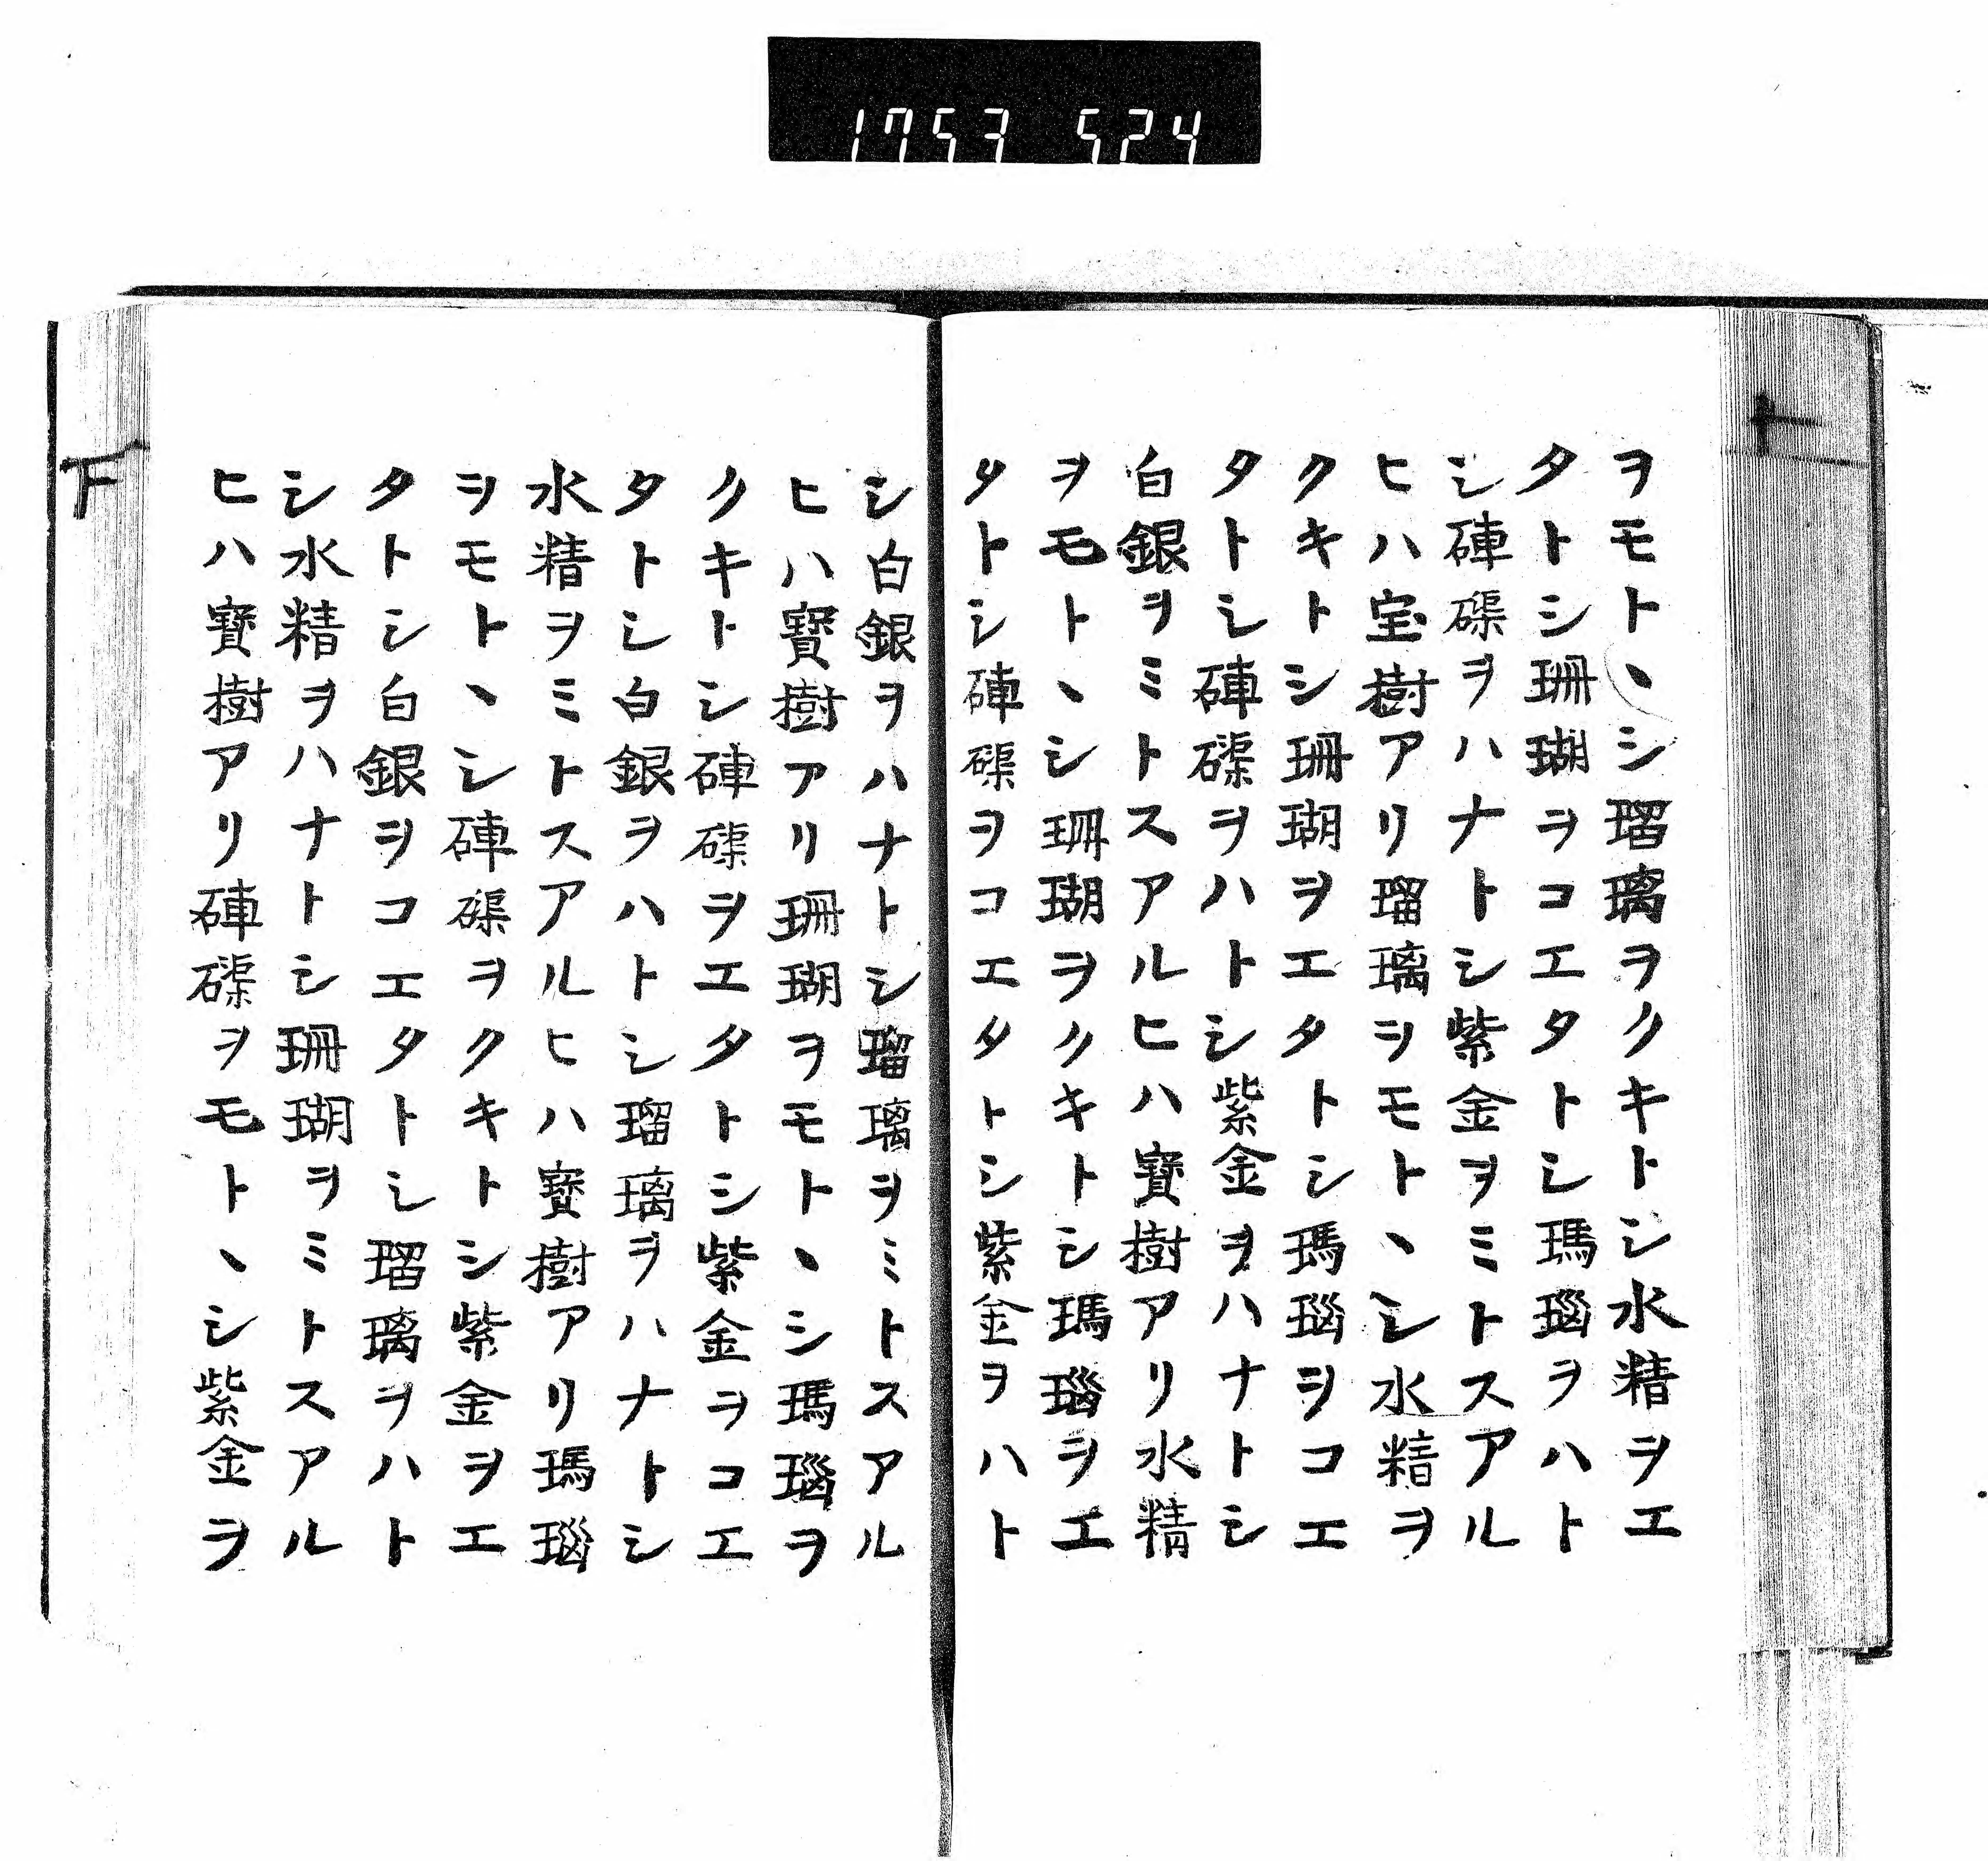 1753 524
ヲモトヽシ瑠璃ヲクキトシ水精ヲエ
タトシ珊瑚ヲコエタトシ瑪瑙ヲハト
シ硨磲ヲハナトシ紫金ヲミトスアル
ヒハ宝樹アリ瑠璃ヲモトヽシ水精ヲ
クキトシ珊瑚ヲエタトシ瑪瑙ヲコエ
タトシ硨磲ヲハトシ紫金ヲハナトシ
白銀ヲミトスアルヒハ寳樹アリ水精
ヲモトヽシ珊瑚ヲクキトシ瑪瑙ヲエ
タトシ硨磲ヲコエタトシ紫金ヲハト
シ白銀ヲハナトシ瑠璃ヲミトスアル
ヒハ寳樹アリ珊瑚ヲモトヽシ瑪瑙ヲ
クキトシ硨磲ヲエタトシ紫金ヲコエ
タトシ白銀ヲハトシ瑠璃ヲハナトシ
水精ヲミトスアルヒハ寳樹アリ瑪瑙
ヲモトヽシ硨磲ヲクキトシ紫金ヲエ
タトシ白銀ヲコエタトシ瑠璃ヲハト
シ水精ヲハナトシ珊瑚ヲミトスアル
ヒハ寳樹アリ硨磲ヲモトヽシ紫金ヲ
下